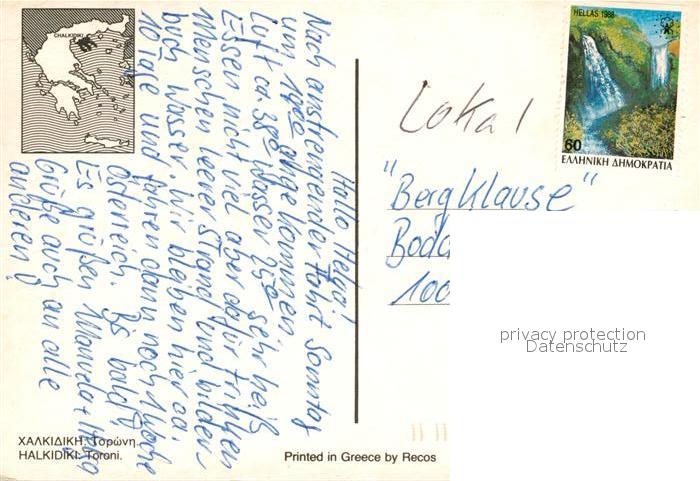 CHALKIDIKI
Hallo Helga!
Nach anstrengender Fahrt Sonntag
um 19⁰⁰ angekommen.
Luft ca. 38° Wasser 25° sehr heiß
Essen nicht viel aber dafür trinken
Menschen leerer Strand und bilder-
buch Wasser. Wir bleiben hier ca.
10 Tage und fahren dann noch 1 Woche
Österreich. Bis bald
Es grüßen Manuela +
Grüße auch an alle
anderen!
ΧΑΛΚΙΔΙΚΗ: Τορώνη.
HALKIDIKI: Toroni.
Printed in Greece by Recos
HELLAS 1988
60
ΕΛΛΗΝΙΚΗ ΔΗΜΟΚΡΑΤΙΑ
Lokal
"Bergklause"
privacy protection
Datenschutz